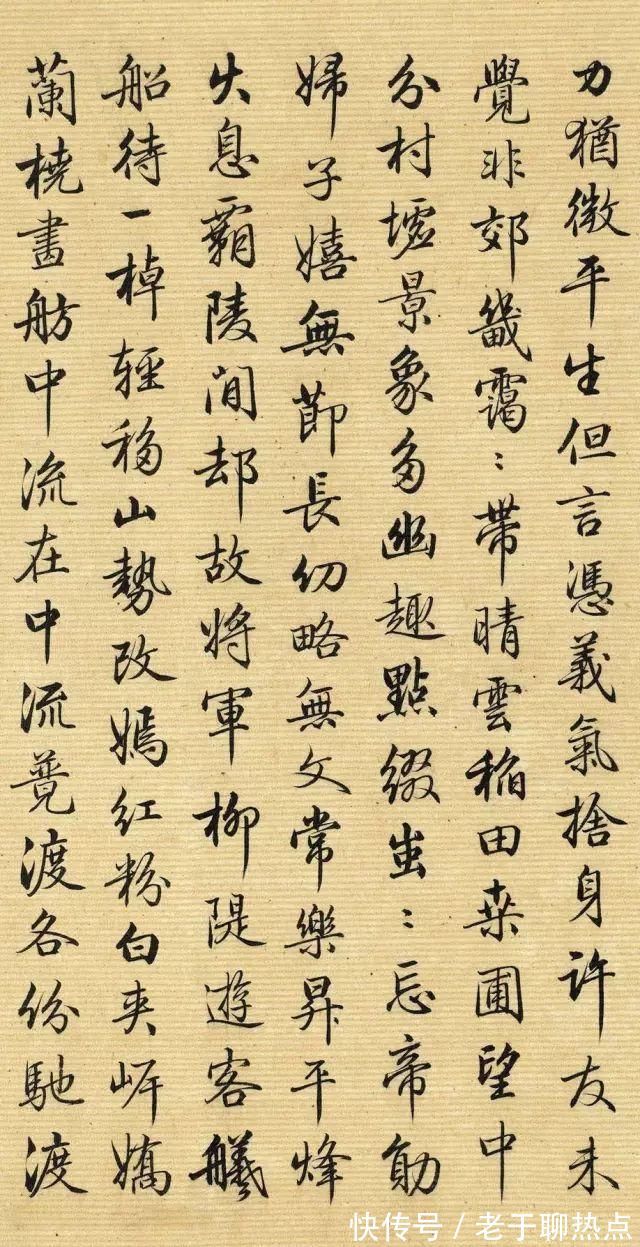 力猶微平生但言憑義氣捨身許友未
覺非郊畿靄〻帶晴雲稻田桒圃望中
分村墟景象多幽趣點綴出〻忘帝勛
婦子嬉無節長幼略無文常樂昇平烽
火息霸陵閒却故將軍柳隄遊客艤
船待一棹輕移山勢改嫣紅粉白夾岍嬌
蘭橈畫舫中流在中流競渡各份馳渡
快传号/老于聊热点